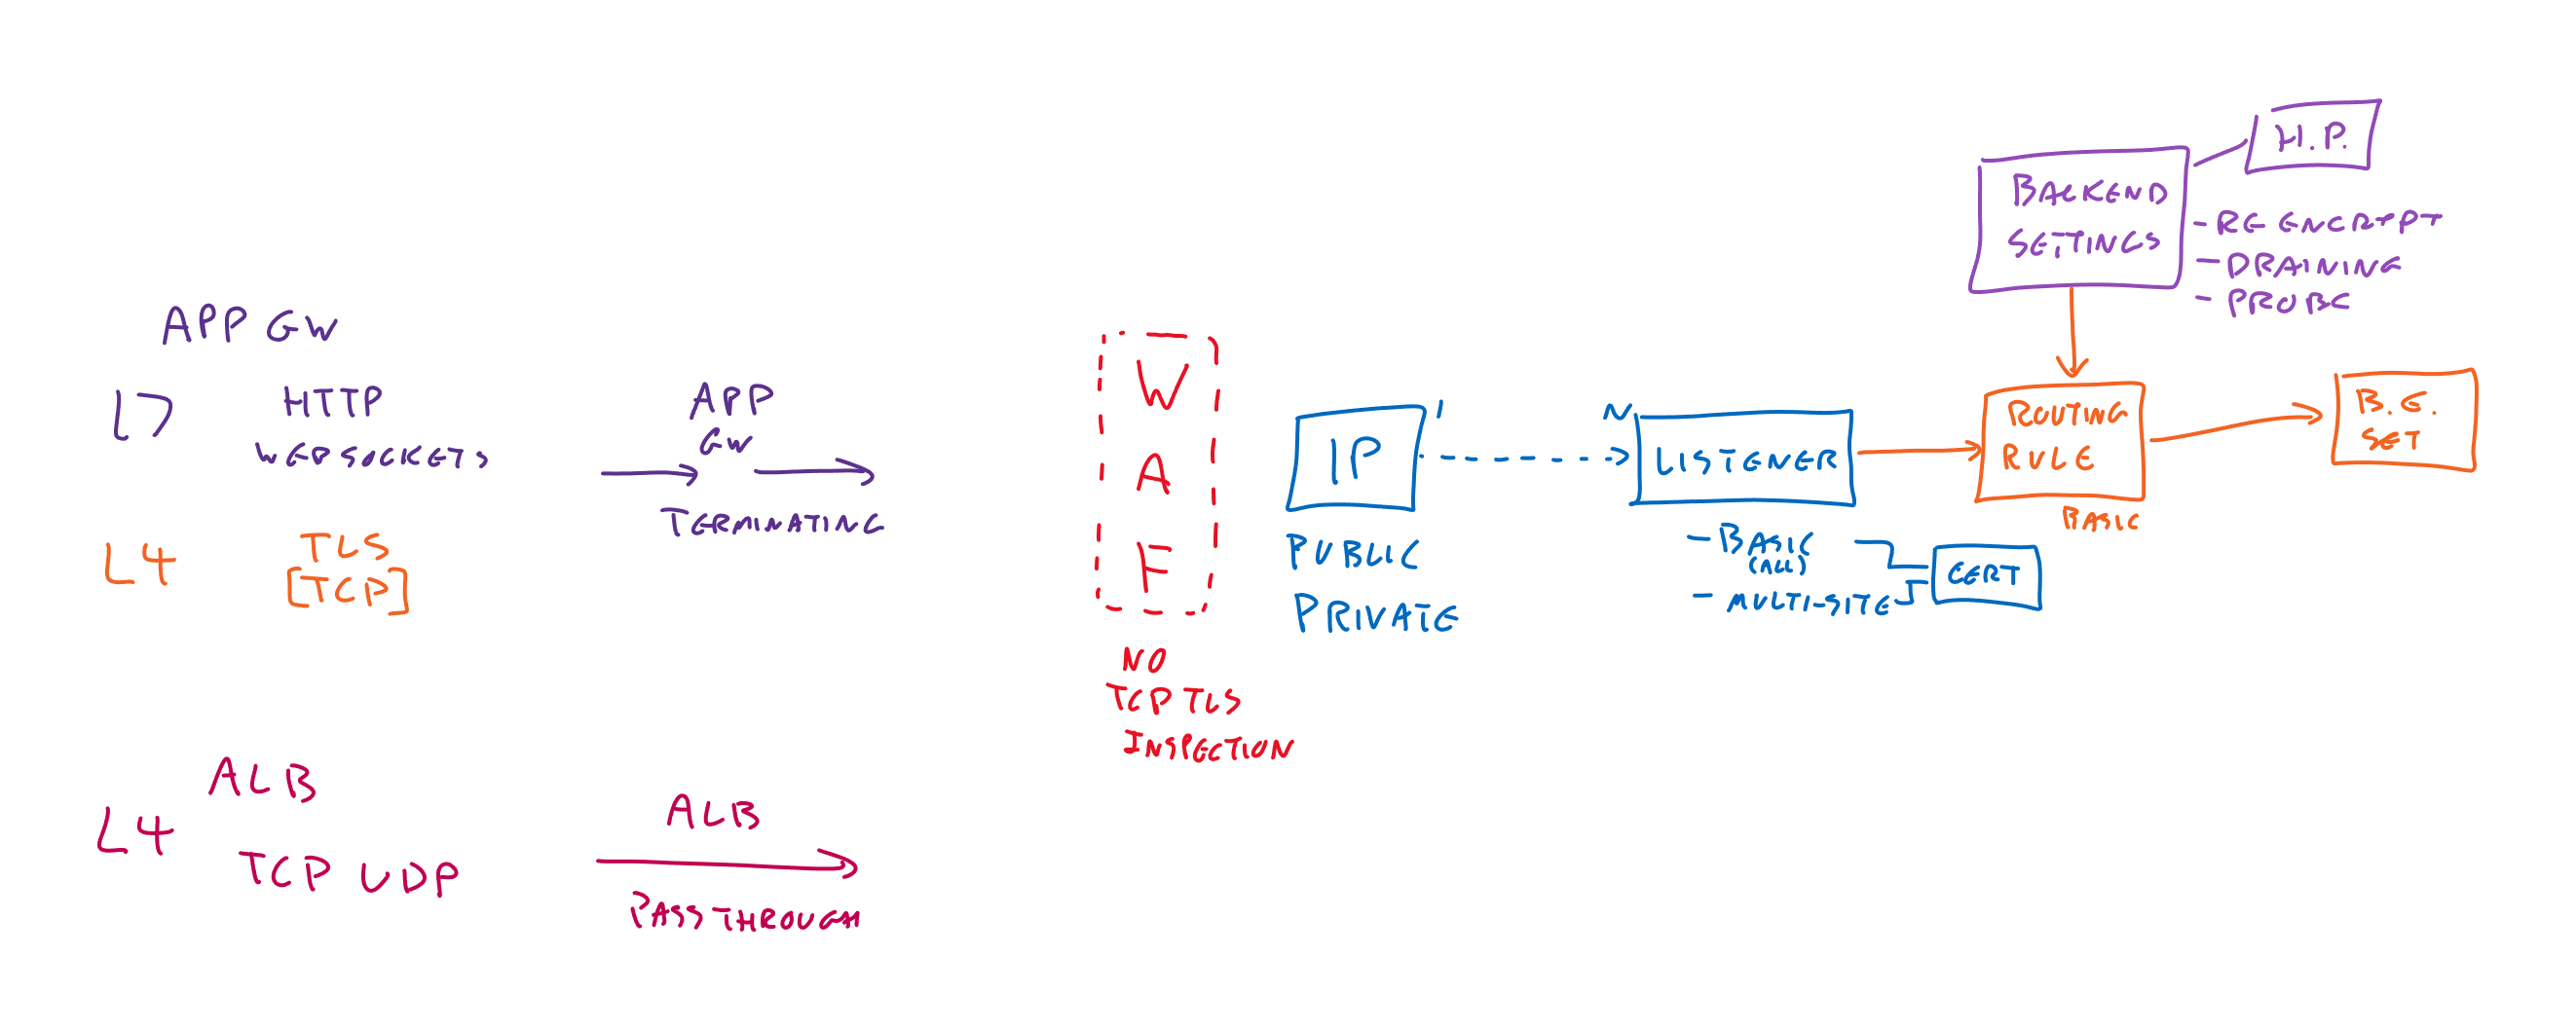 APP GW
L7
HTTP
WEBSOCKETS
L4
TLS
[TCP]
APP
GW
TERMINATING
ALB
L4
TCP UDP
ALB
PASS THROUGH
W
A
F
NO
TCP TLS
INSPECTION
IP
1
PUBLIC
PRIVATE
N
LISTENER
- BASIC
(ALL)
- MULTI-SITE
CERT
BACKEND
SETTINGS
H.P.
- RE ENCRYPT
- DRAINING
- PROBE
ROUTING
RULE
BASIC
B.E.
SET